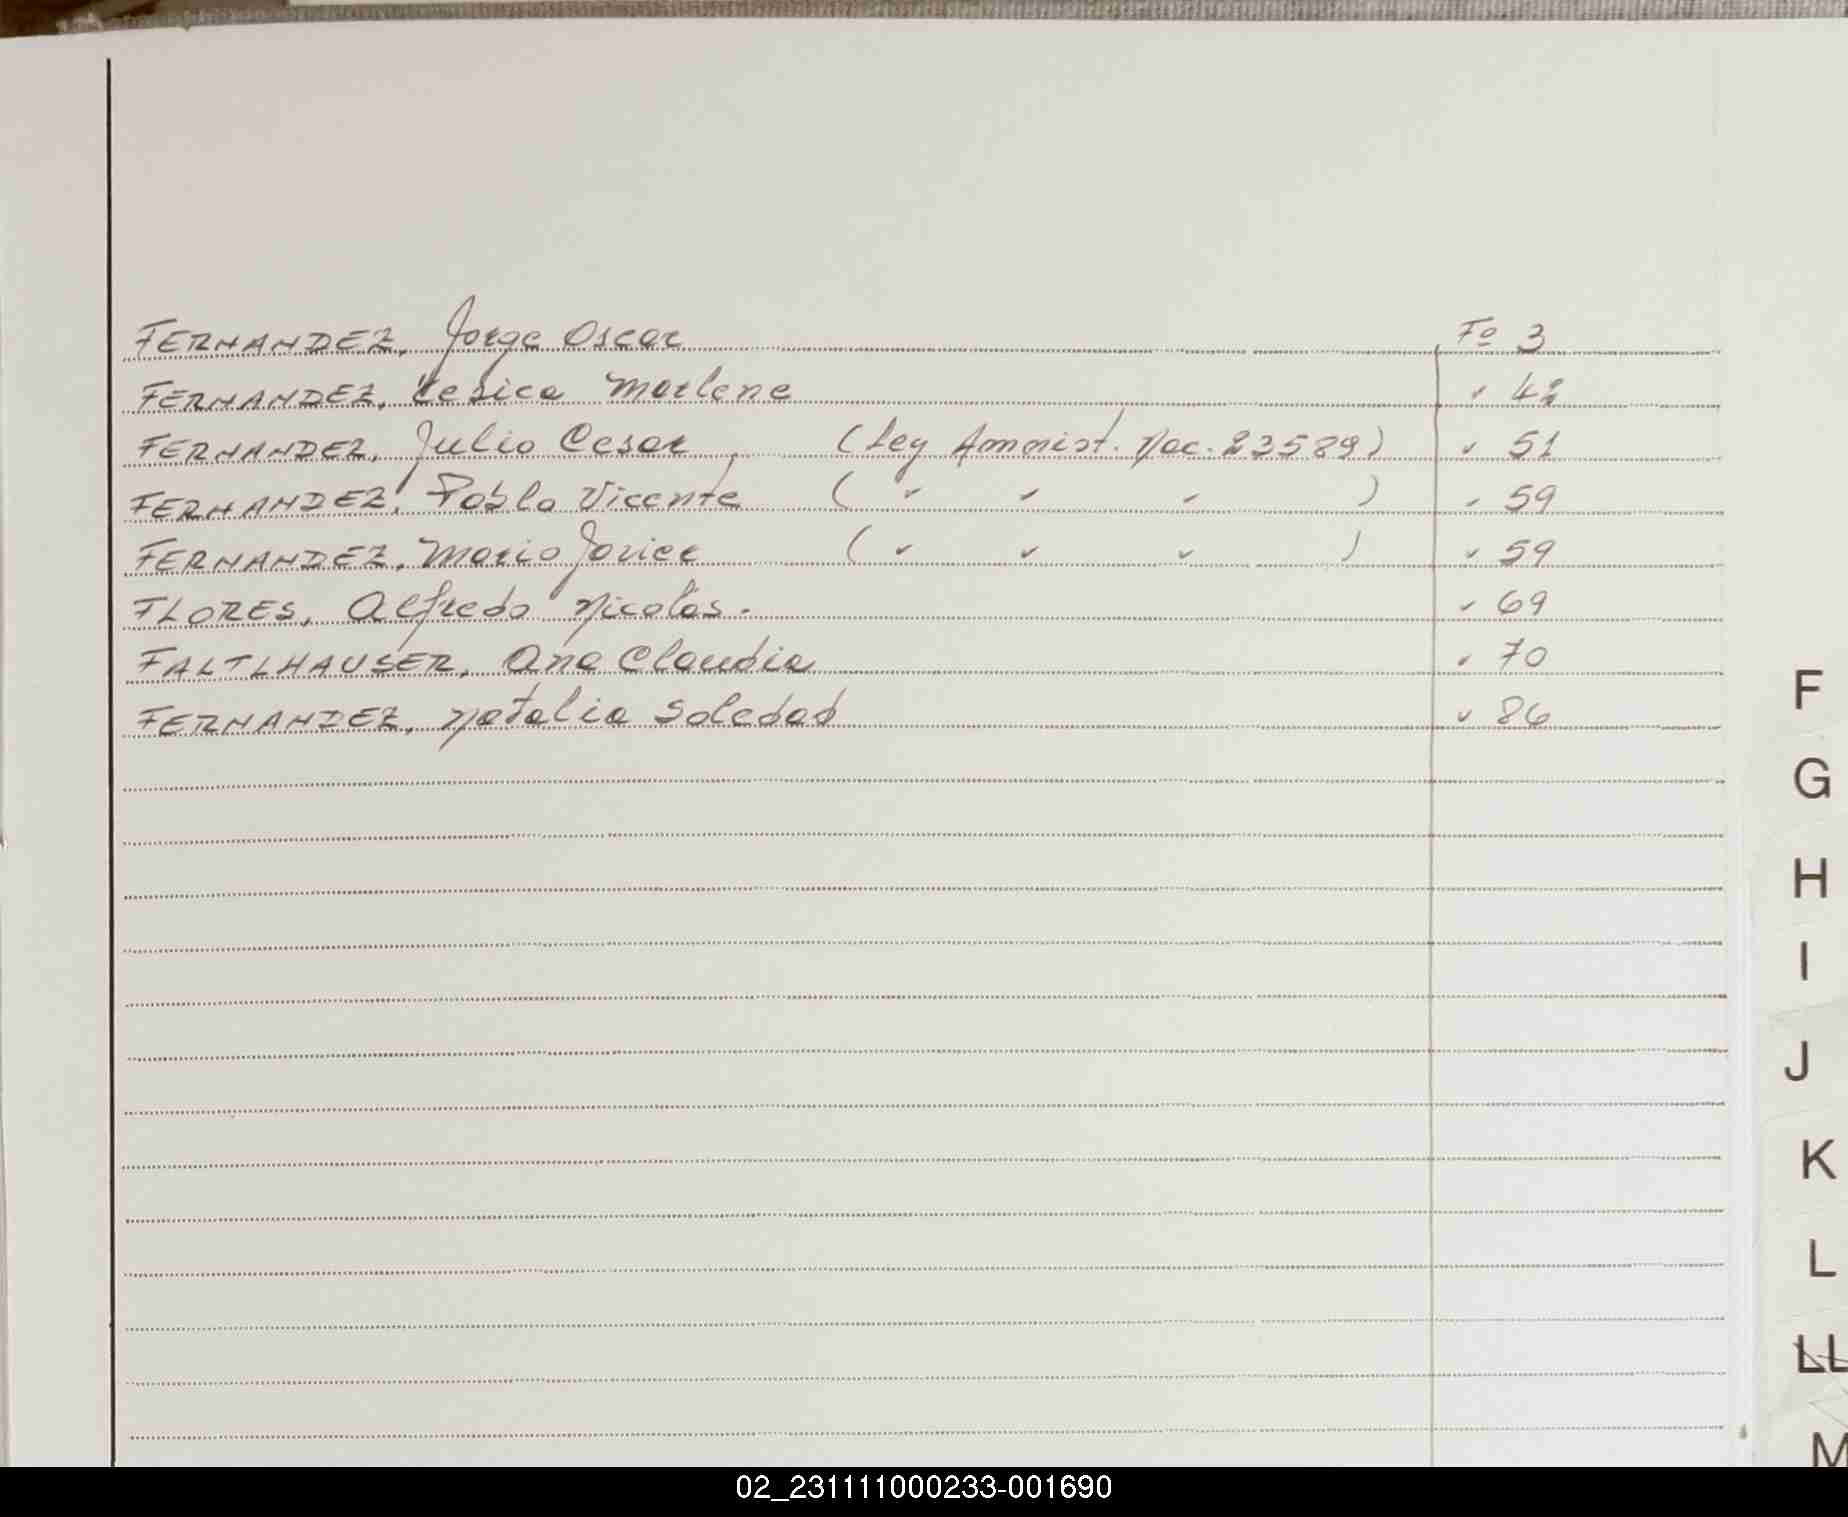 FERNANDEZ, Jorge Oscar Fo 3
FERNANDEZ, Yesica Marlene " 42
FERNANDEZ, Julio Cesar (Ley Amnist. Nac. 23589) " 51
FERNANDEZ, Pablo Vicente ( " " " ) " 59
FERNANDEZ, Mario Javier ( " " " ) " 59
FLORES, Alfredo Nicolás. " 69
FALTLHAUSER, Ana Claudia " 70
FERNANDEZ, Natalia Soledad " 86
F
G
H
I
J
K
L
LL
M
02_231111000233-001690